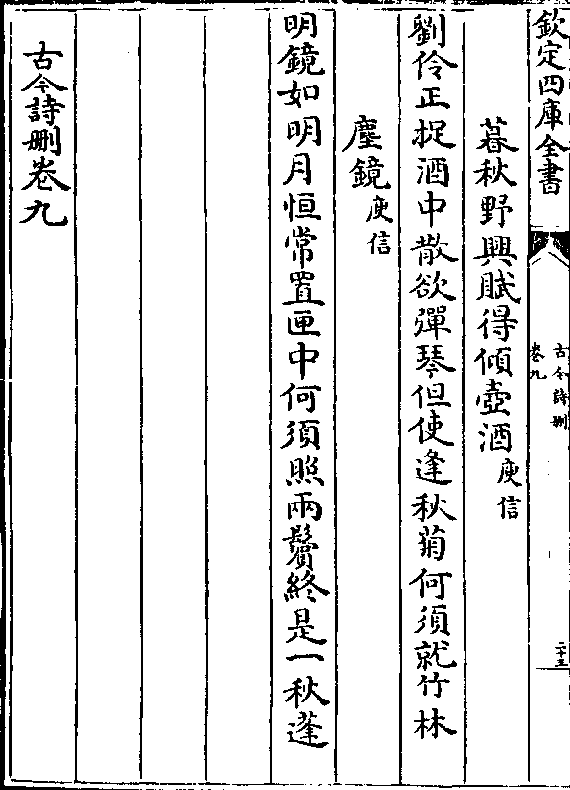 欽定四庫全書
古今詩刪
卷九
二十五
暮秋野興賦得傾壺酒 庾信
劉伶正捉酒中散欲彈琴但使逢秋菊何須就竹林
塵鏡 庾信
明鏡如明月恒常置匣中何須照兩鬢終是一秋蓬
古今詩刪卷九